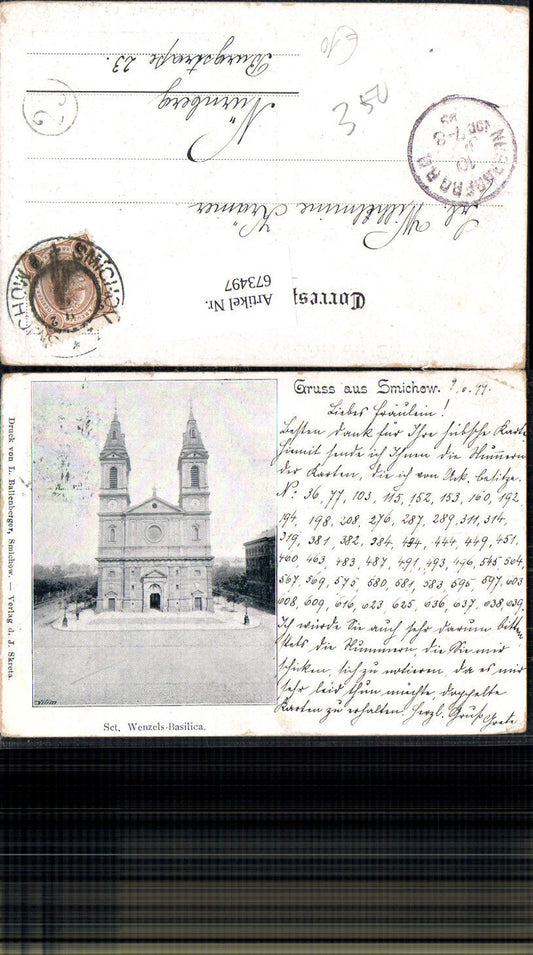 Corresp
Artikel Nr.
673497
Frl. Wilhelmine Krämer
Nürnberg
Burgstraße 23.
350
€10
SMICHOW
SMÍCHOV
NUERNBERG
10
7-8
Gruss aus Smichow. 9/6. 97.
Liebes Fräulein!
Besten Dank für Ihre hübsche Karte
hiermit sende ich Ihnen die Nummern
der Karten, die ich von Ack. besitze.
N: 36, 77, 103, 115, 152, 153, 160, 192
194, 198, 208, 276, 287, 289, 311, 314,
319, 381, 382, 384, 434, 444, 449, 451,
460, 463, 483, 487, 491, 493, 496, 545, 564,
567, 569, 575, 580, 581, 583, 595, 597, 603
608, 609, 616, 623, 625, 636, 637, 638, 639.
Ich würde Sie auch sehr darum bitten
stets die Nummern, die Sie mir
schicken, sich zu notieren, da es mir
sehr leid thun möchte doppelte
Karten zu erhalten. Herzl. Gruß Grete
Druck von L. Ballenberger, Smichow. — Verlag d. J. Skreta.
Vilim
Sct. Wenzels-Basilica.